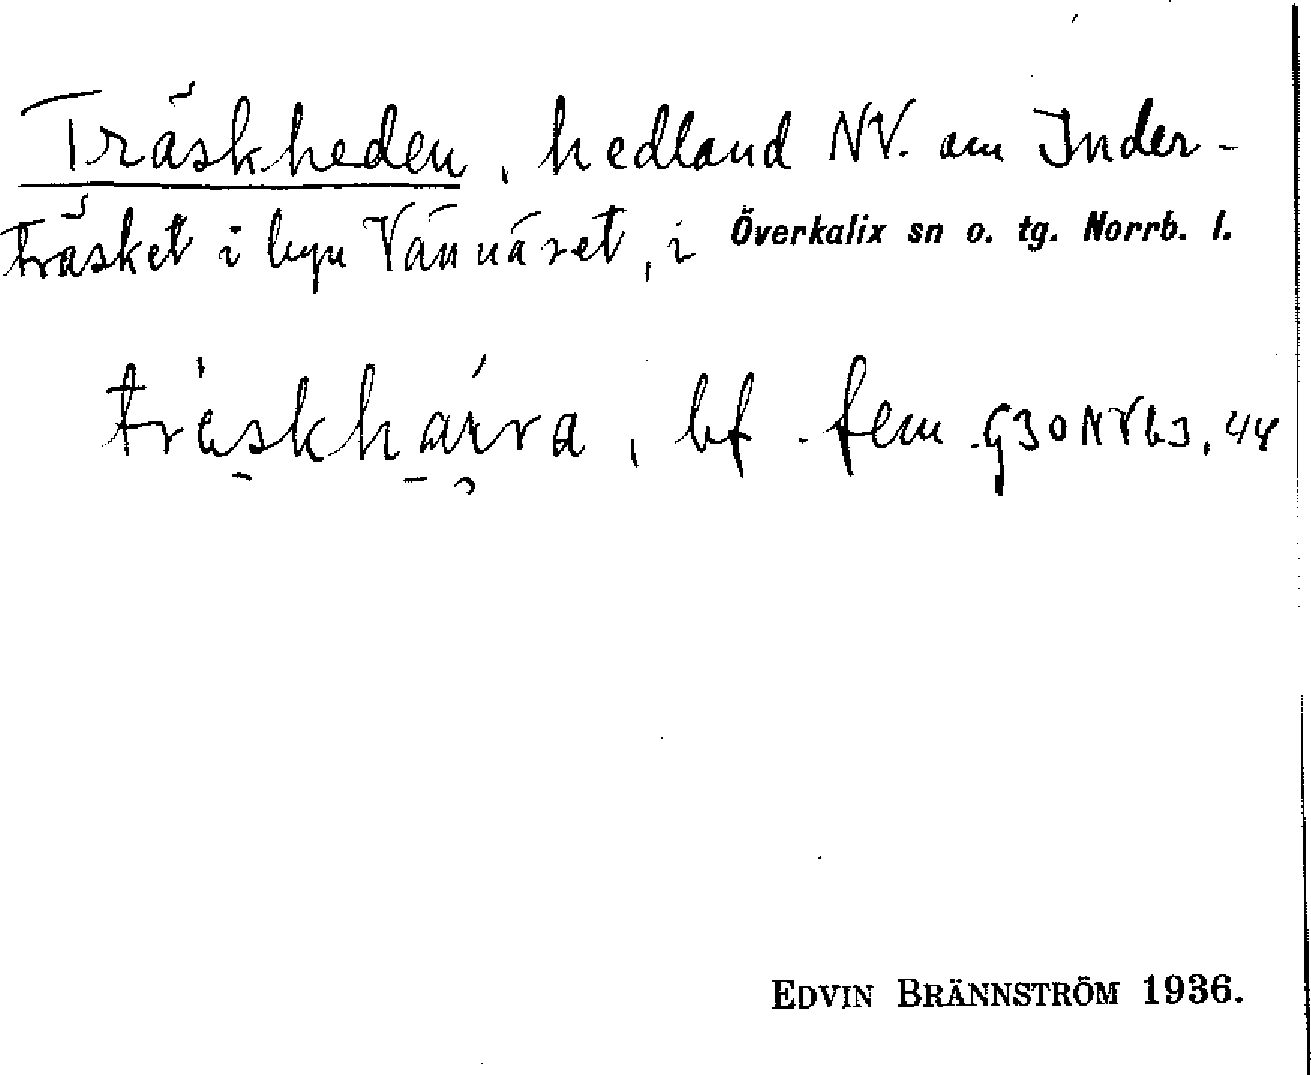 Träskheden, hedland NV. om Inder-
träsket i byn Vännäset, i Överkalix sn o. tg. Norrb. l.
bf. fem.
EDVIN BRÄNNSTRÖM 1936.